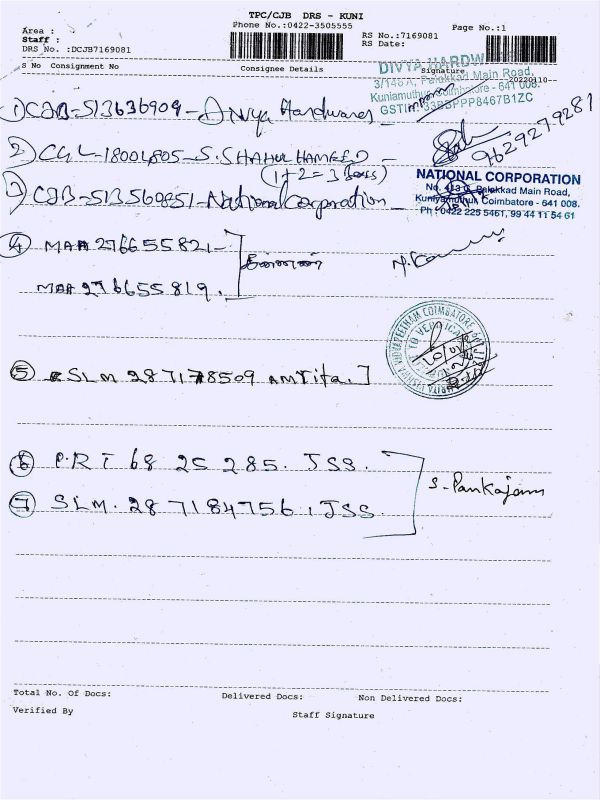 TPC/CJB DRS - KUNI
Phone No.:0422-3505555
Page No.:1
Area :
Staff :
DRS No. :DCJB7169081
RS No.:7169081
RS Date:
S No Consignment No
Consignee Details
Signature
20220110--
DIVYA HARDW
3/148A, Palakkad Main Road,
Kuniamuthur, Coimbatore - 641 008.
GSTIN: 33BBPPP8467B1ZC
① CJB-513636909 - Divya Hardwares -
2 CGL-18001805 - S. SHAHUL HAMEED -
9629279281
(1+2=3 Boxs)
3 CJB-513560851 - National Corporation -
NATIONAL CORPORATION
Palakkad Main Road,
Kuniyamuthur, Coimbatore - 641 008.
Ph : 0422 225 5461, 99 44 11 54 61
④ MAA 276655821 -
MAA 276655819.
⑤ SLM 287178509 AMrita.]
⑥ P.R.I 68 25 285. JSS.
⑦ SLM. 287184756, JSS.
S. Pankajam
Total No. Of Docs:
Delivered Docs:
Non Delivered Docs:
Verified By
Staff Signature